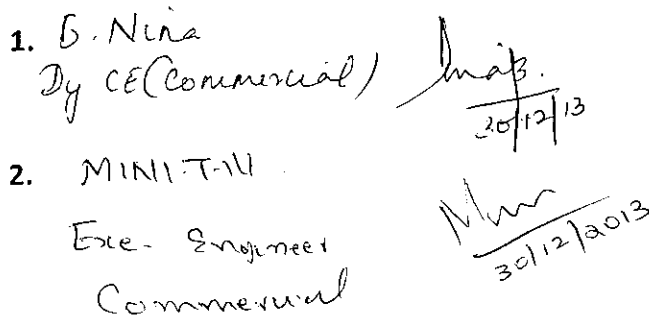 1. B. Nina
Dy CE(Commercial)
30/12/13
2. MINI.T
Exe. Engineer
Commercial
30/12/2013